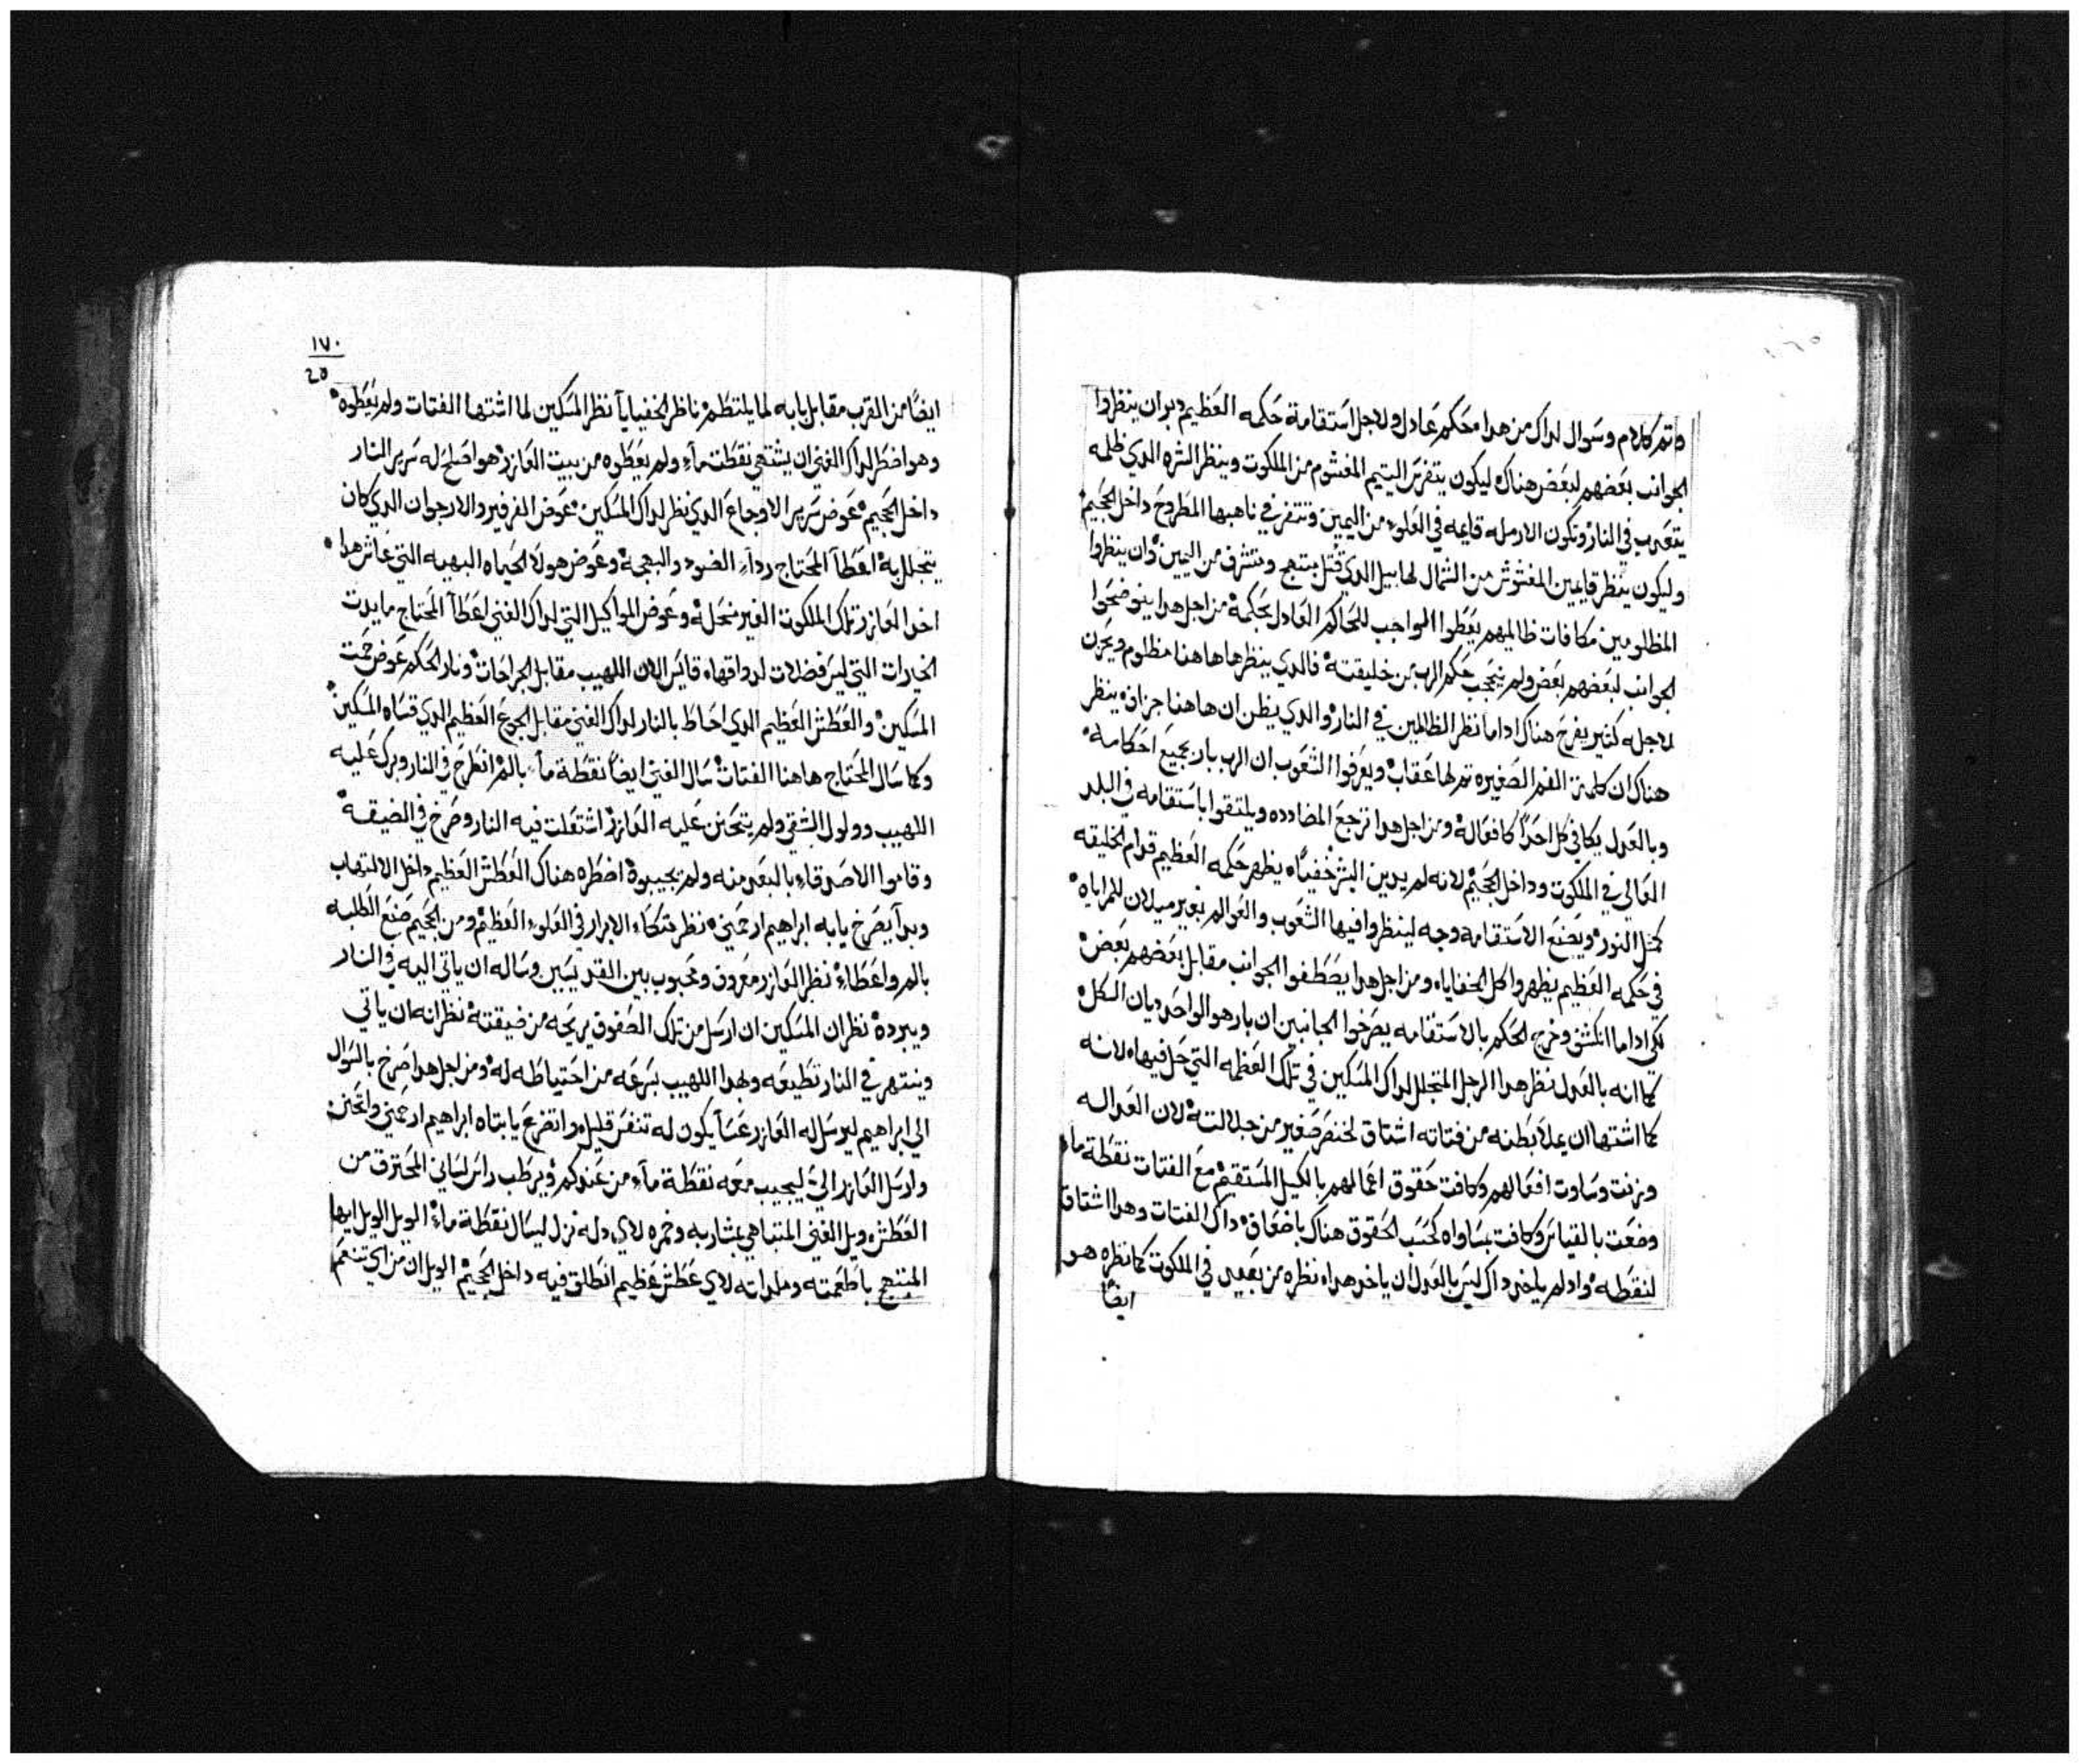 واتم كلام وسوال لداك من هدا محكم عادل ولاجل استقامة حكمه العظيم دبر ان ينظروا
الجوانب بعضهم لبعض هناك ليكون يتفرس اليتيم المغشوم من الملكوت وينظر الشره الدي ظلمه
يتعدب في النار وتكون الارمله قايمه في العلو من اليمين وتتفرس في ناهبها المطروح داخل الجحيم
وليكون ينظر قايمين المغشوش من الشمال لهابيل الدي قتل مبتهج ومتشرف من اليمين وان ينظروا
المظلومين مكافات ظالميهم يعطوا الواجب للحاكم العادل بحكمة من اجل هدا يتوضحوا
الجوانب لبعضهم بعض ولم ينحجب حكم الرب من خليقته فالدي ينظرها هاهنا مظلوم ويحزن
لاجله كثير يفرح هناك اداما نظر الظالمين في النار والدي يظن ان هاهنا جزافه ينظر
هناك ان كلمة الفم الصغيره تم لها عقاب ويعرفوا الشعوب ان الرب بار بجميع احكامه
وبالعدل يكافي كل احدا كافعاله ومن اجل هدا ترجع المضادده ويلتقوا باستقامه في البلد
العالي في الملكوت وداخل الجحيم لانه لم يدين البشر خفيا يظهر حكمه العظيم قدام الخليقه
كمثل النور ويصنع الاستقامه وجه لينظروا فيها الشعوب والعوالم بغير ميلان للمراياه
في حكمه العظيم يظهروا كل الخفايا ومن اجل هدا يصطفوا الجوانب مقابل بعضهم بعض
لكي اداما انكشف وخرج الحكم بالاستقامه يصرخوا الجانبين ان بار هو الواحد ديان الكل
كما انه بالعدل نظر هدا الرجل المتجلل لداك المسكين في تلك العظمه التي حل فيها لانه
كما اشتها ان يملا بطنه من فتاته اشتاق لخنصر صغير من جلالته لان العداله
وزنت وساوت افعالهم وكافت حقوق اعمالهم بالكيل المستقيم مع الفتات نقطة ماء
وضعت بالقياس وكافت بمساواه كحسب الحقوق هناك باضعاف داك الفتات وهدا اشتاق
لنقطه واد لم ياخد داك ليس بالعدل ان ياخد هدا نظره من بعيد في الملكوت كما نظره هو
ايضا
١٧٠
20
ايضا من القرب مقابل بابه لما يلتطم ناظر الخفيايا نظر المسكين لما اشتها الفتات ولم يعطوه
وهو اضطر لداك الغني ان يشتهي نقطة ماء ولم يعطوه من بيت العازر هو اصلح له سرير النار
داخل الجحيم عوض سرير الاوجاع الدي نظر لداك المسكين عوض الفرفير والارجوان الدي كان
يتجلل به اعطا المحتاج رداء الضو والبهجه وعوض هولا الحياه البهيه التي عاش هدا
اخد العازر تلك الملكوت الغير منحله وعوض المواكيل التي لداك الغني اعطا المحتاج مايدت
الخيرات التي ليس فضلات لدواقها قايس الان اللهيب مقابل الجراحات ونار الحكم عوض حمت
المسكين والعطش العظيم الدي احاط بالنار لداك الغني مقابل الجوع العظيم الدي قساه المسكين
وكما سال المحتاج هاهنا الفتات سال الغني ايضا نقطة ماء بالم انطرح في النار وبرك عليه
اللهيب وولول الشقي ولم يتحنن عليه العازر اشتعلت فيه النار وصرخ في الضيقه
وقاموا الاصدقاء بالبعد منه ولم يجيبوه اضطره هناك العطش العظيم داخل الالتهاب
وبدا يصرخ يا ابه ابراهيم ارحمني نظر متكاء الابرار في العلو العظيم ومن الجحيم صنع الطلبه
بالم واعطاء نظر العازر معروف ومحبوب بين القديسين وساله ان ياتي اليه في النار
ويبرده نظر ان المسكين ان ارسل من تلك الصفوف يريحه من ضيقته نظر انه ان ياتي
وينتهر في النار تطيعه وبهدا اللهيب بسرعه من احتياطه له ومن اجل هدا صرخ بالسوال
الي ابراهيم ليرسل له العازر عسا يكون له تنفس قليل واتضرع يا ابتاه ابراهيم ارحمني واتحنن
وارسل العازر الي ليجيب معه نقطة ماء من عندكم ويرطب راس لساني المحترق من
العطش ويل الغني المتباهي بمشاربه وخمره لاي دله نزل ليسال نقطة ماء الويل الويل ايها
المبتهج باطعمته وملداته لاي عطش عظيم انطلق فيه داخل الجحيم الويل ان من اي تنعم